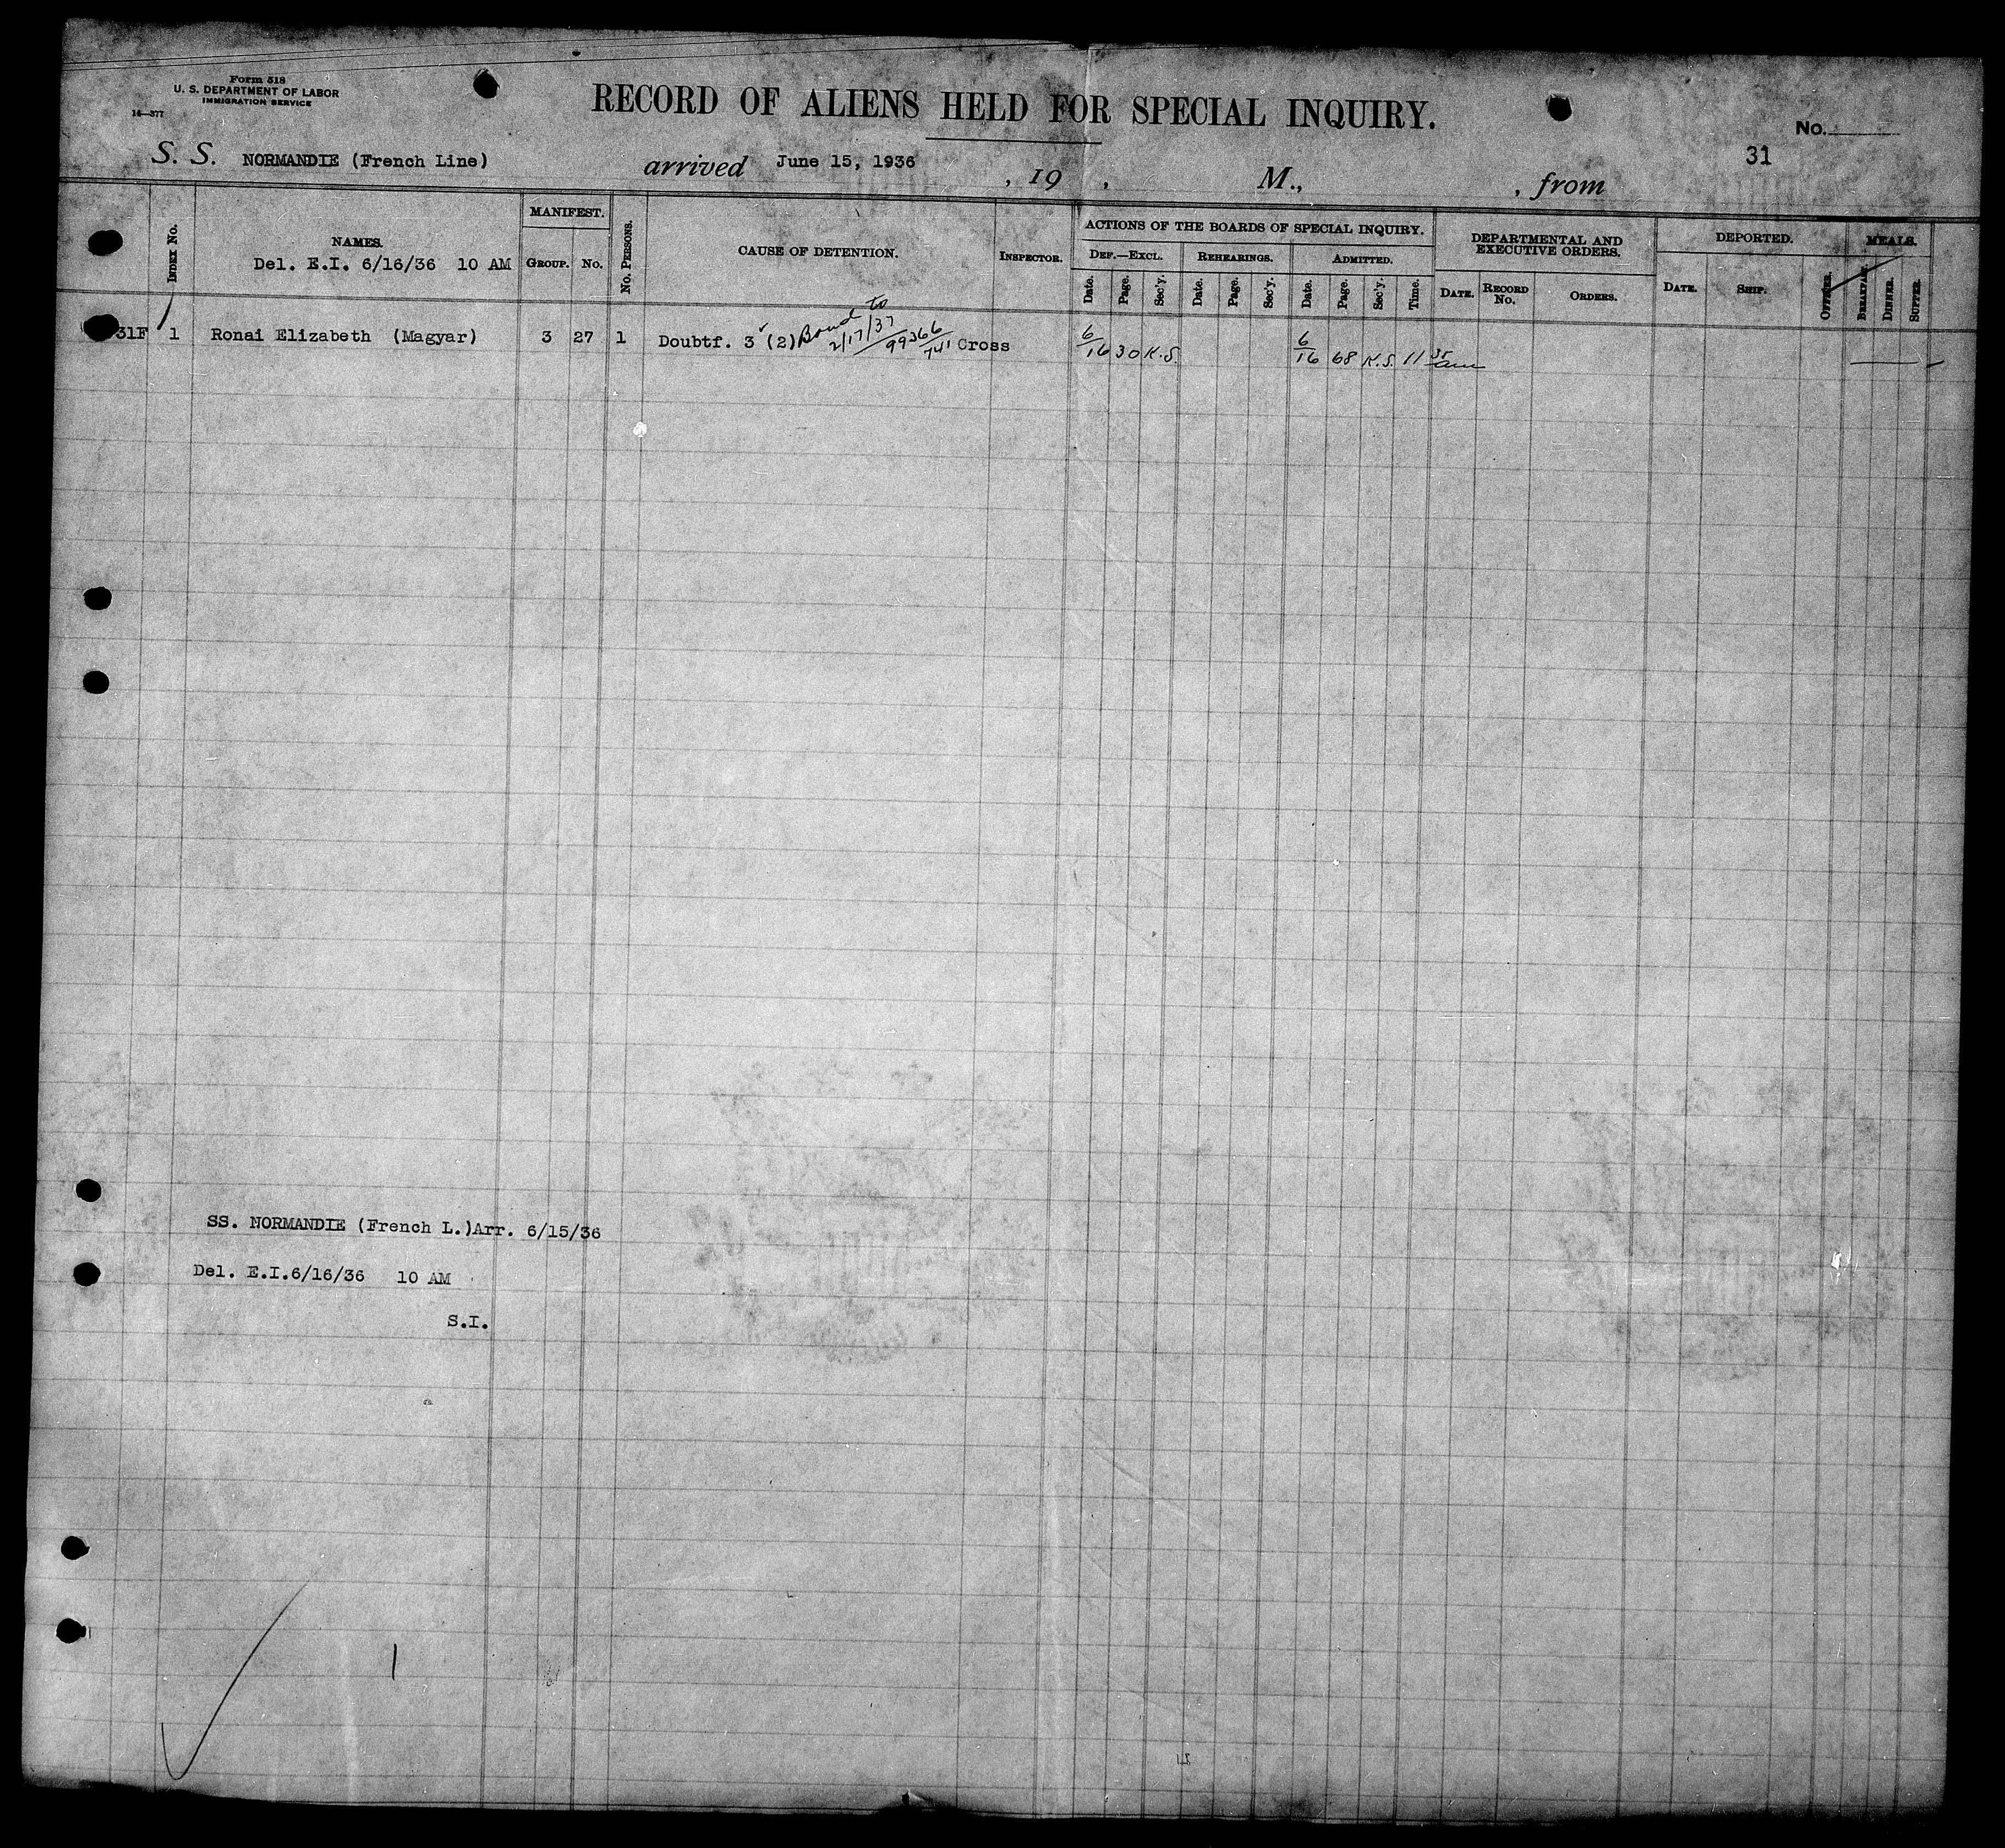 Form 518
U. S. DEPARTMENT OF LABOR
IMMIGRATION SERVICE
14—377
RECORD OF ALIENS HELD FOR SPECIAL INQUIRY.
No.
31
S. S. NORMANDIE (French Line) arrived June 15, 1936 , 19 , M., , from
INDEX No.
NAMES.
Del. E.I. 6/16/36 10 AM
MANIFEST.
GROUP. No.
No. PERSONS.
CAUSE OF DETENTION.
INSPECTOR.
ACTIONS OF THE BOARDS OF SPECIAL INQUIRY.
DEF.—EXCL. REHEARINGS. ADMITTED.
Date. Page. Sec'y. Date. Page. Sec'y. Date. Page. Sec'y. Time.
DEPARTMENTAL AND
EXECUTIVE ORDERS.
DATE. RECORD No. ORDERS.
DEPORTED.
DATE. SHIP. OFFICER.
MEALS.
BREAKFAST. DINNER. SUPPER.
31F 1 Ronai Elizabeth (Magyar) 3 27 1 Doubtf. 3 (2) Bond to 2/17/37 99366/741 Cross 6/16 30 K.S. 6/16 68 K.S. 11 35 am
SS. NORMANDIE (French L.)Arr. 6/15/36
Del. E.I.6/16/36 10 AM
S.I.
1